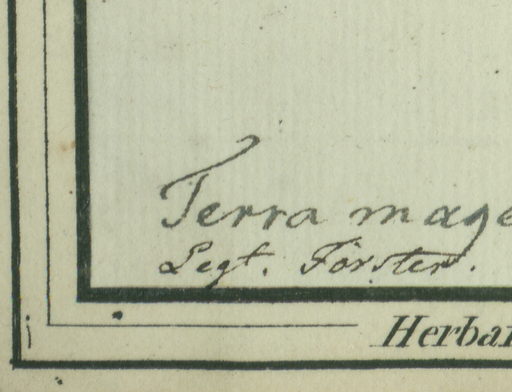 Terra mage
Legt. Forster.
Herbar